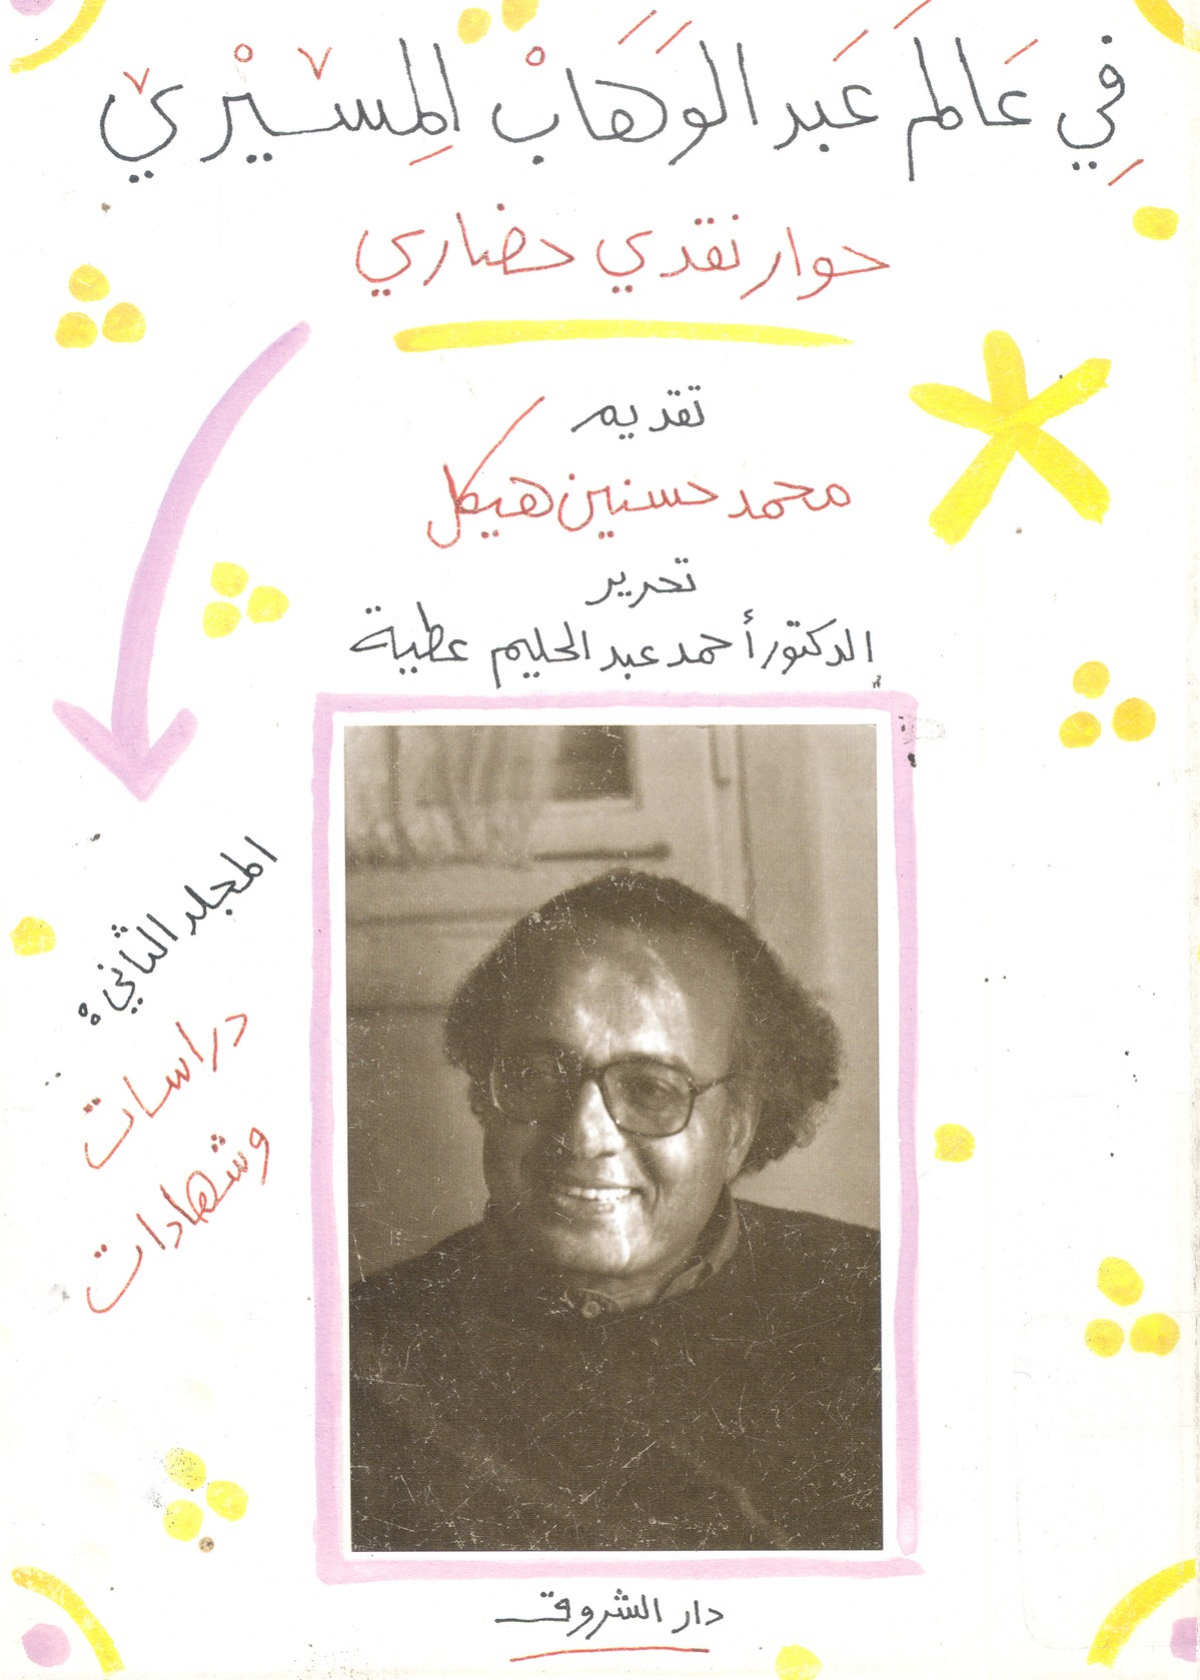 فِي عَالَم عَبد الوَهَابْ المِسيْري
حوار نقدي حضاري
تقديم
محمد حسنين هيكل
تحرير
الدكتور أحمد عبد الحليم عطية
المجلد الثاني:
دراسات
وشهادات
دار الشروق